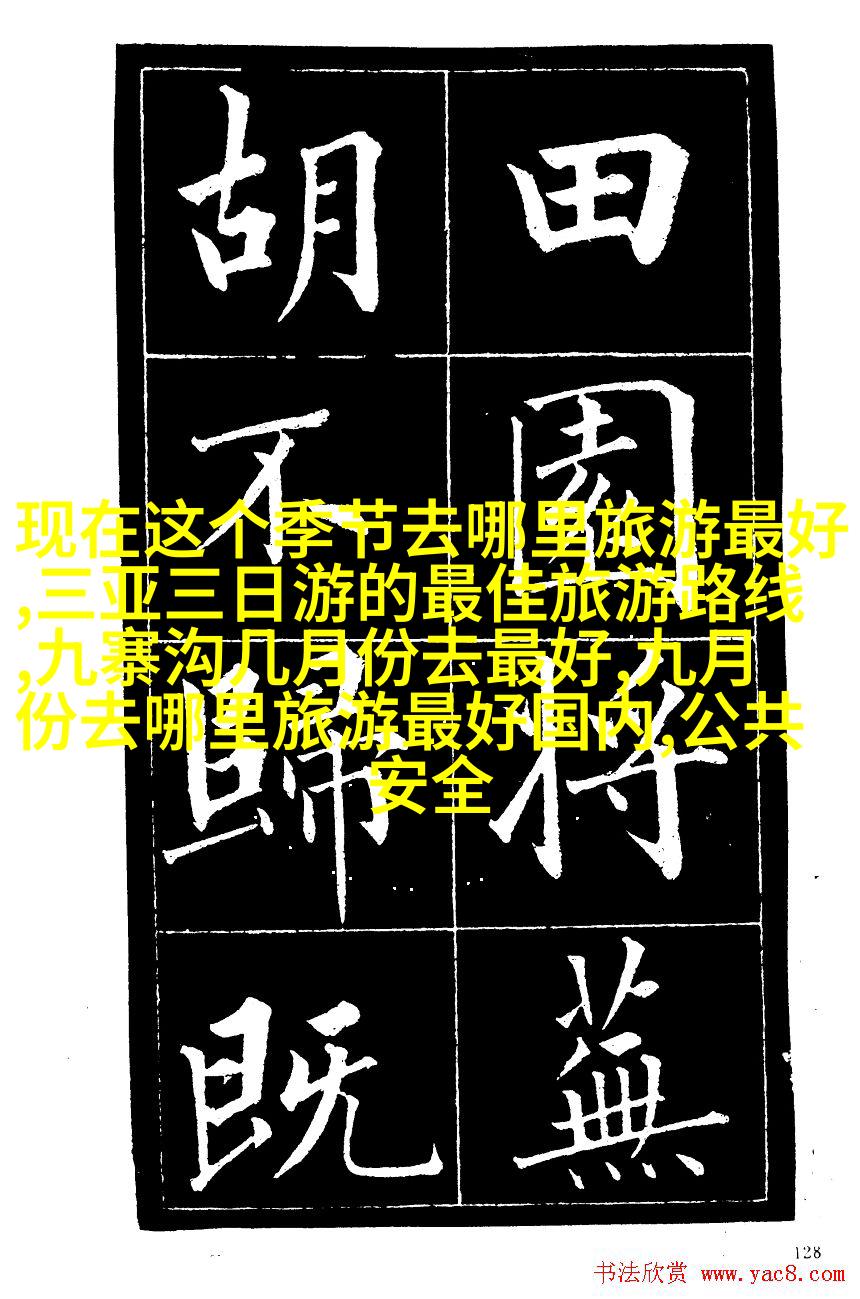 田園将蕪
胡不歸既
现在这个季节去哪里旅游最好
,三亚三日游的最佳旅游路线
,九寨沟几月份去最好,九月
份去哪里旅游最好国内,公共
安全
128
书法欣赏 www.yac8.com